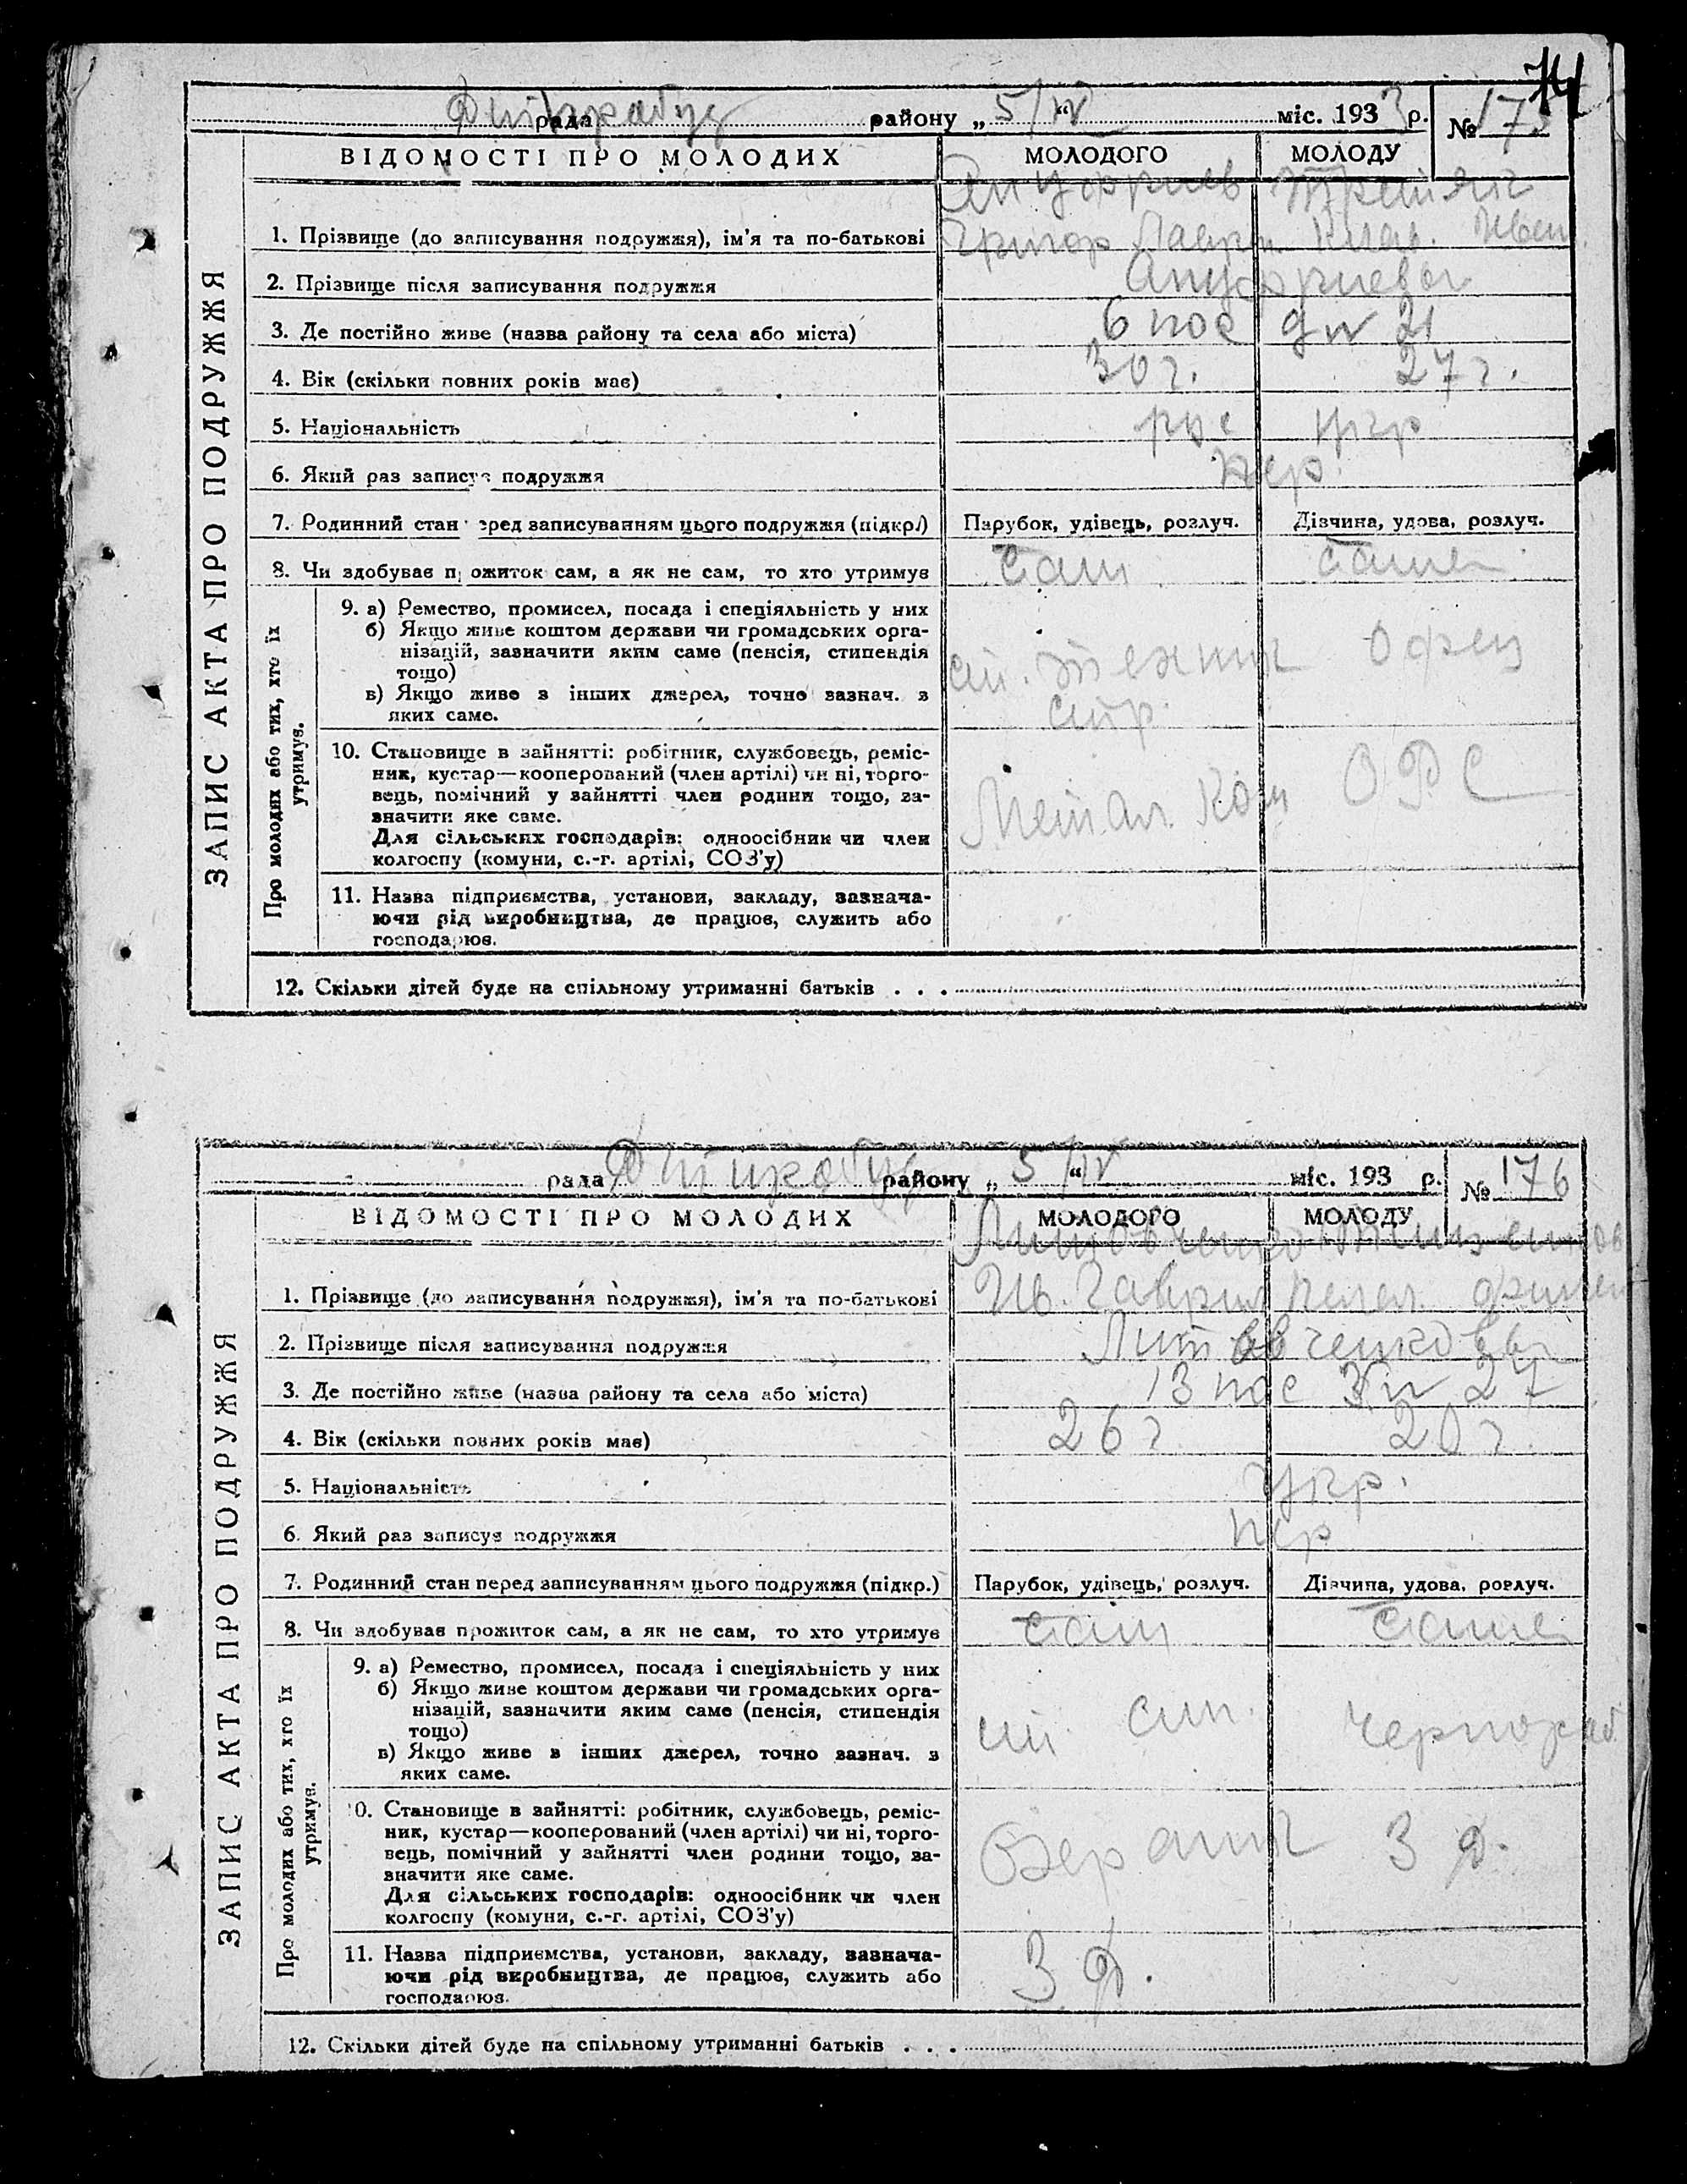 74
рада району „ 5/IV “ міс. 1933 р. № 175
ВІДОМОСТІ ПРО МОЛОДИХ МОЛОДОГО МОЛОДУ
Ануфриев Третяк
1. Прізвище (до записування подружжя), ім’я та по-батькові Григор Лавр Клав.
2. Прізвище після записування подружжя Ануфриевы
3. Де постійно живе (назва району та села або міста) 6 пос 21
4. Вік (скільки повних років має) 30 г. 27 г.
5. Національність рус укр
6. Який раз записує подружжя пер.
7. Родинний стан перед записуванням цього подружжя (підкр.) Парубок, удівець, розлуч. Дівчина, удова, розлуч.
8. Чи здобуває прожиток сам, а як не сам, то хто утримує сам сама
ЗАПИС АКТА ПРО ПОДРУЖЖЯ
Про молодих або тих, хто їх утримує.
9. а) Ремество, промисел, посада і спеціяльність у них
б) Якщо живе коштом держави чи громадських орга-
нізацій, зазначити яким саме (пенсія, стипендія
тощо)
в) Якщо живе з інших джерел, точно зазнач. з
яких саме.
ст. техник офиц
стр.
10. Становище в зайнятті: робітник, службовець, реміс-
ник, кустар—кооперований (член артілі) чи ні, торго-
вець, помічний у зайнятті член родини тощо, за-
значити яке саме.
Для сільських господарів: одноосібник чи член
колгоспу (комуни, с.-г. артілі, СОЗ’у)
Метал. Ком
11. Назва підприємства, установи, закладу, зазнача-
ючи рід виробництва, де працює, служить або
господарює.
12. Скільки дітей буде на спільному утриманні батьків . . .
рада району „ 5/IV “ міс. 193 р. № 176
ВІДОМОСТІ ПРО МОЛОДИХ МОЛОДОГО МОЛОДУ
Литовченко
1. Прізвище (до записування подружжя), ім’я та по-батькові Ив. Гаврил Пелаг.
2. Прізвище після записування подружжя Литовченковы
3. Де постійно живе (назва району та села або міста) 13 пос 27
4. Вік (скільки повних років має) 26 г 20 г.
5. Національність укр.
6. Який раз записує подружжя пер
7. Родинний стан перед записуванням цього подружжя (підкр.) Парубок, удівець, розлуч. Дівчина, удова, розлуч.
8. Чи здобуває прожиток сам, а як не сам, то хто утримує сам сама
ЗАПИС АКТА ПРО ПОДРУЖЖЯ
Про молодих або тих, хто їх утримує.
9. а) Ремество, промисел, посада і спеціяльність у них
б) Якщо живе коштом держави чи громадських орга-
нізацій, зазначити яким саме (пенсія, стипендія
тощо)
в) Якщо живе з інших джерел, точно зазнач. з
яких саме.
чернораб.
10. Становище в зайнятті: робітник, службовець, реміс-
ник, кустар—кооперований (член артілі) чи ні, торго-
вець, помічний у зайнятті член родини тощо, за-
значити яке саме.
Для сільських господарів: одноосібник чи член
колгоспу (комуни, с.-г. артілі, СОЗ’у)
11. Назва підприємства, установи, закладу, зазнача-
ючи рід виробництва, де працює, служить або
господарює.
12. Скільки дітей буде на спільному утриманні батьків . . .